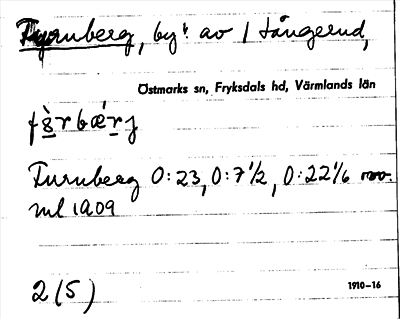 Furnberg, by i av 1 Långerud,
Östmarks sn, Fryksdals hd, Värmlands län
Furuberg 0:23, 0:7 1/2, 0:22 1/6 mv.
ml 1909
2 (5)
1910-16